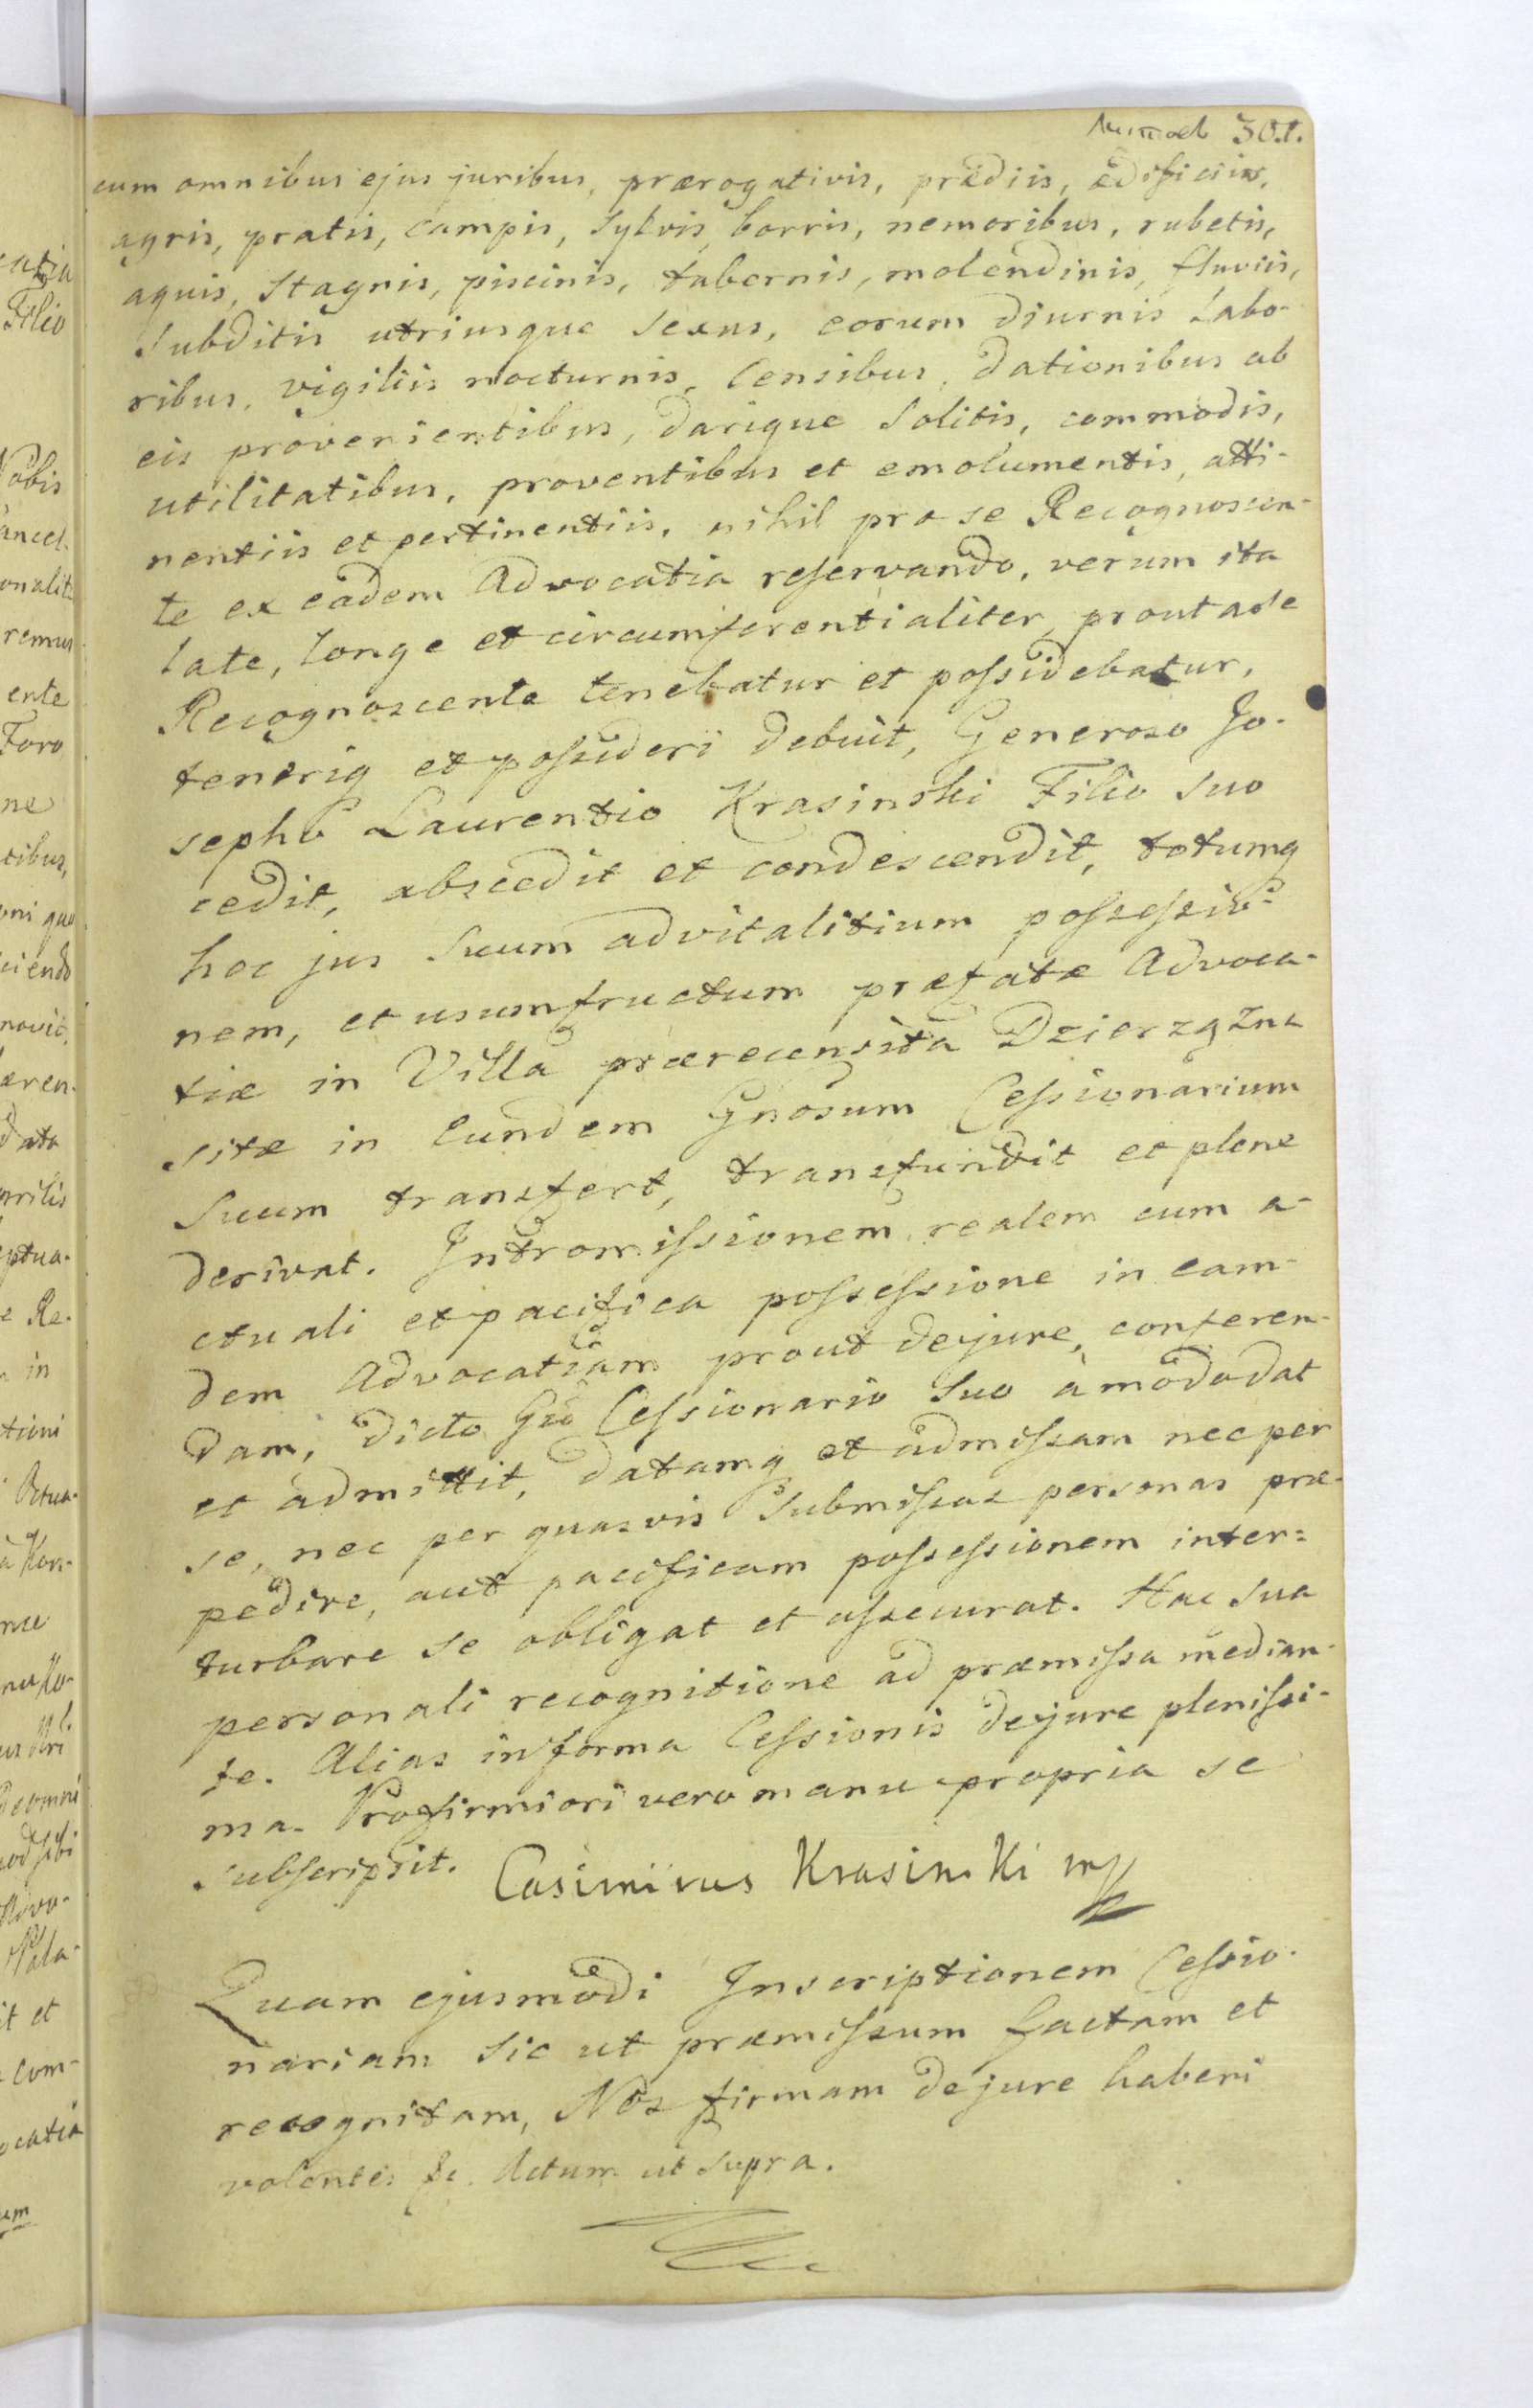 301.
cum omnibus ejus juribus, prærogativis, prædiis, ædificiis,
agris, pratis, campis, Sylvis, borris, nemoribus, rubetis,
aquis, Stagnis, piscinis, tabernis, molendinis, fluviis,
Subditis utriusque Sexus, eorum diurnis Labo-
ribus, vigiliis nocturnis, Censibus, dationibus ab
eis provenientibus, darique Solitis, commodis,
utilitatibus, proventibus et emolumentis, atti-
nentiis et pertinentiis, nihil pro se Recognoscen-
te ex eadem Advocatia reservando, verum ita
late, longe et circumferentialiter, prout a se
Recognoscente tenebatur et possidebatur,
teneriq et possideri debuit, Generoso Jo-
sepho Laurentio Krasinski Filio Suo
cedit, abscedit et condescendit, totumq
hoc jus Suum advitalitium possessio=
nem, et usumfructum præfatæ Advoca-
tiæ in Villa prærecensita Dzierzązna
sitæ in Eundem Gnosum Cessionarium
Suum transfert, transfundit et plene
derivat. Intromissionem realem cum a-
ctuali et pacifica possessione in eam-
dem Advocatiam prout de jure, conferen-
dam, dicto Gso Cessionario Suo a modo dat
et admittit, datamq et admissam nec per
se, nec per quasvis Submissas personas præ-
pedire, aut pacificam possessionem inter=
turbare se obligat et assecurat. Hac Sua
personali recognitione ad præmissa median-
te. Alias in forma Cessionis de jure plenissi-
ma. Pro firmiori vero manu propria se
subscripsit. Casimirus Krasinski mp
Quam ejusmodi Inscriptionem Cessio-
nariam Sic ut præmissum factam et
recognitam, Nos firmam de jure haberi
volentes &c. Actum ut Supra.